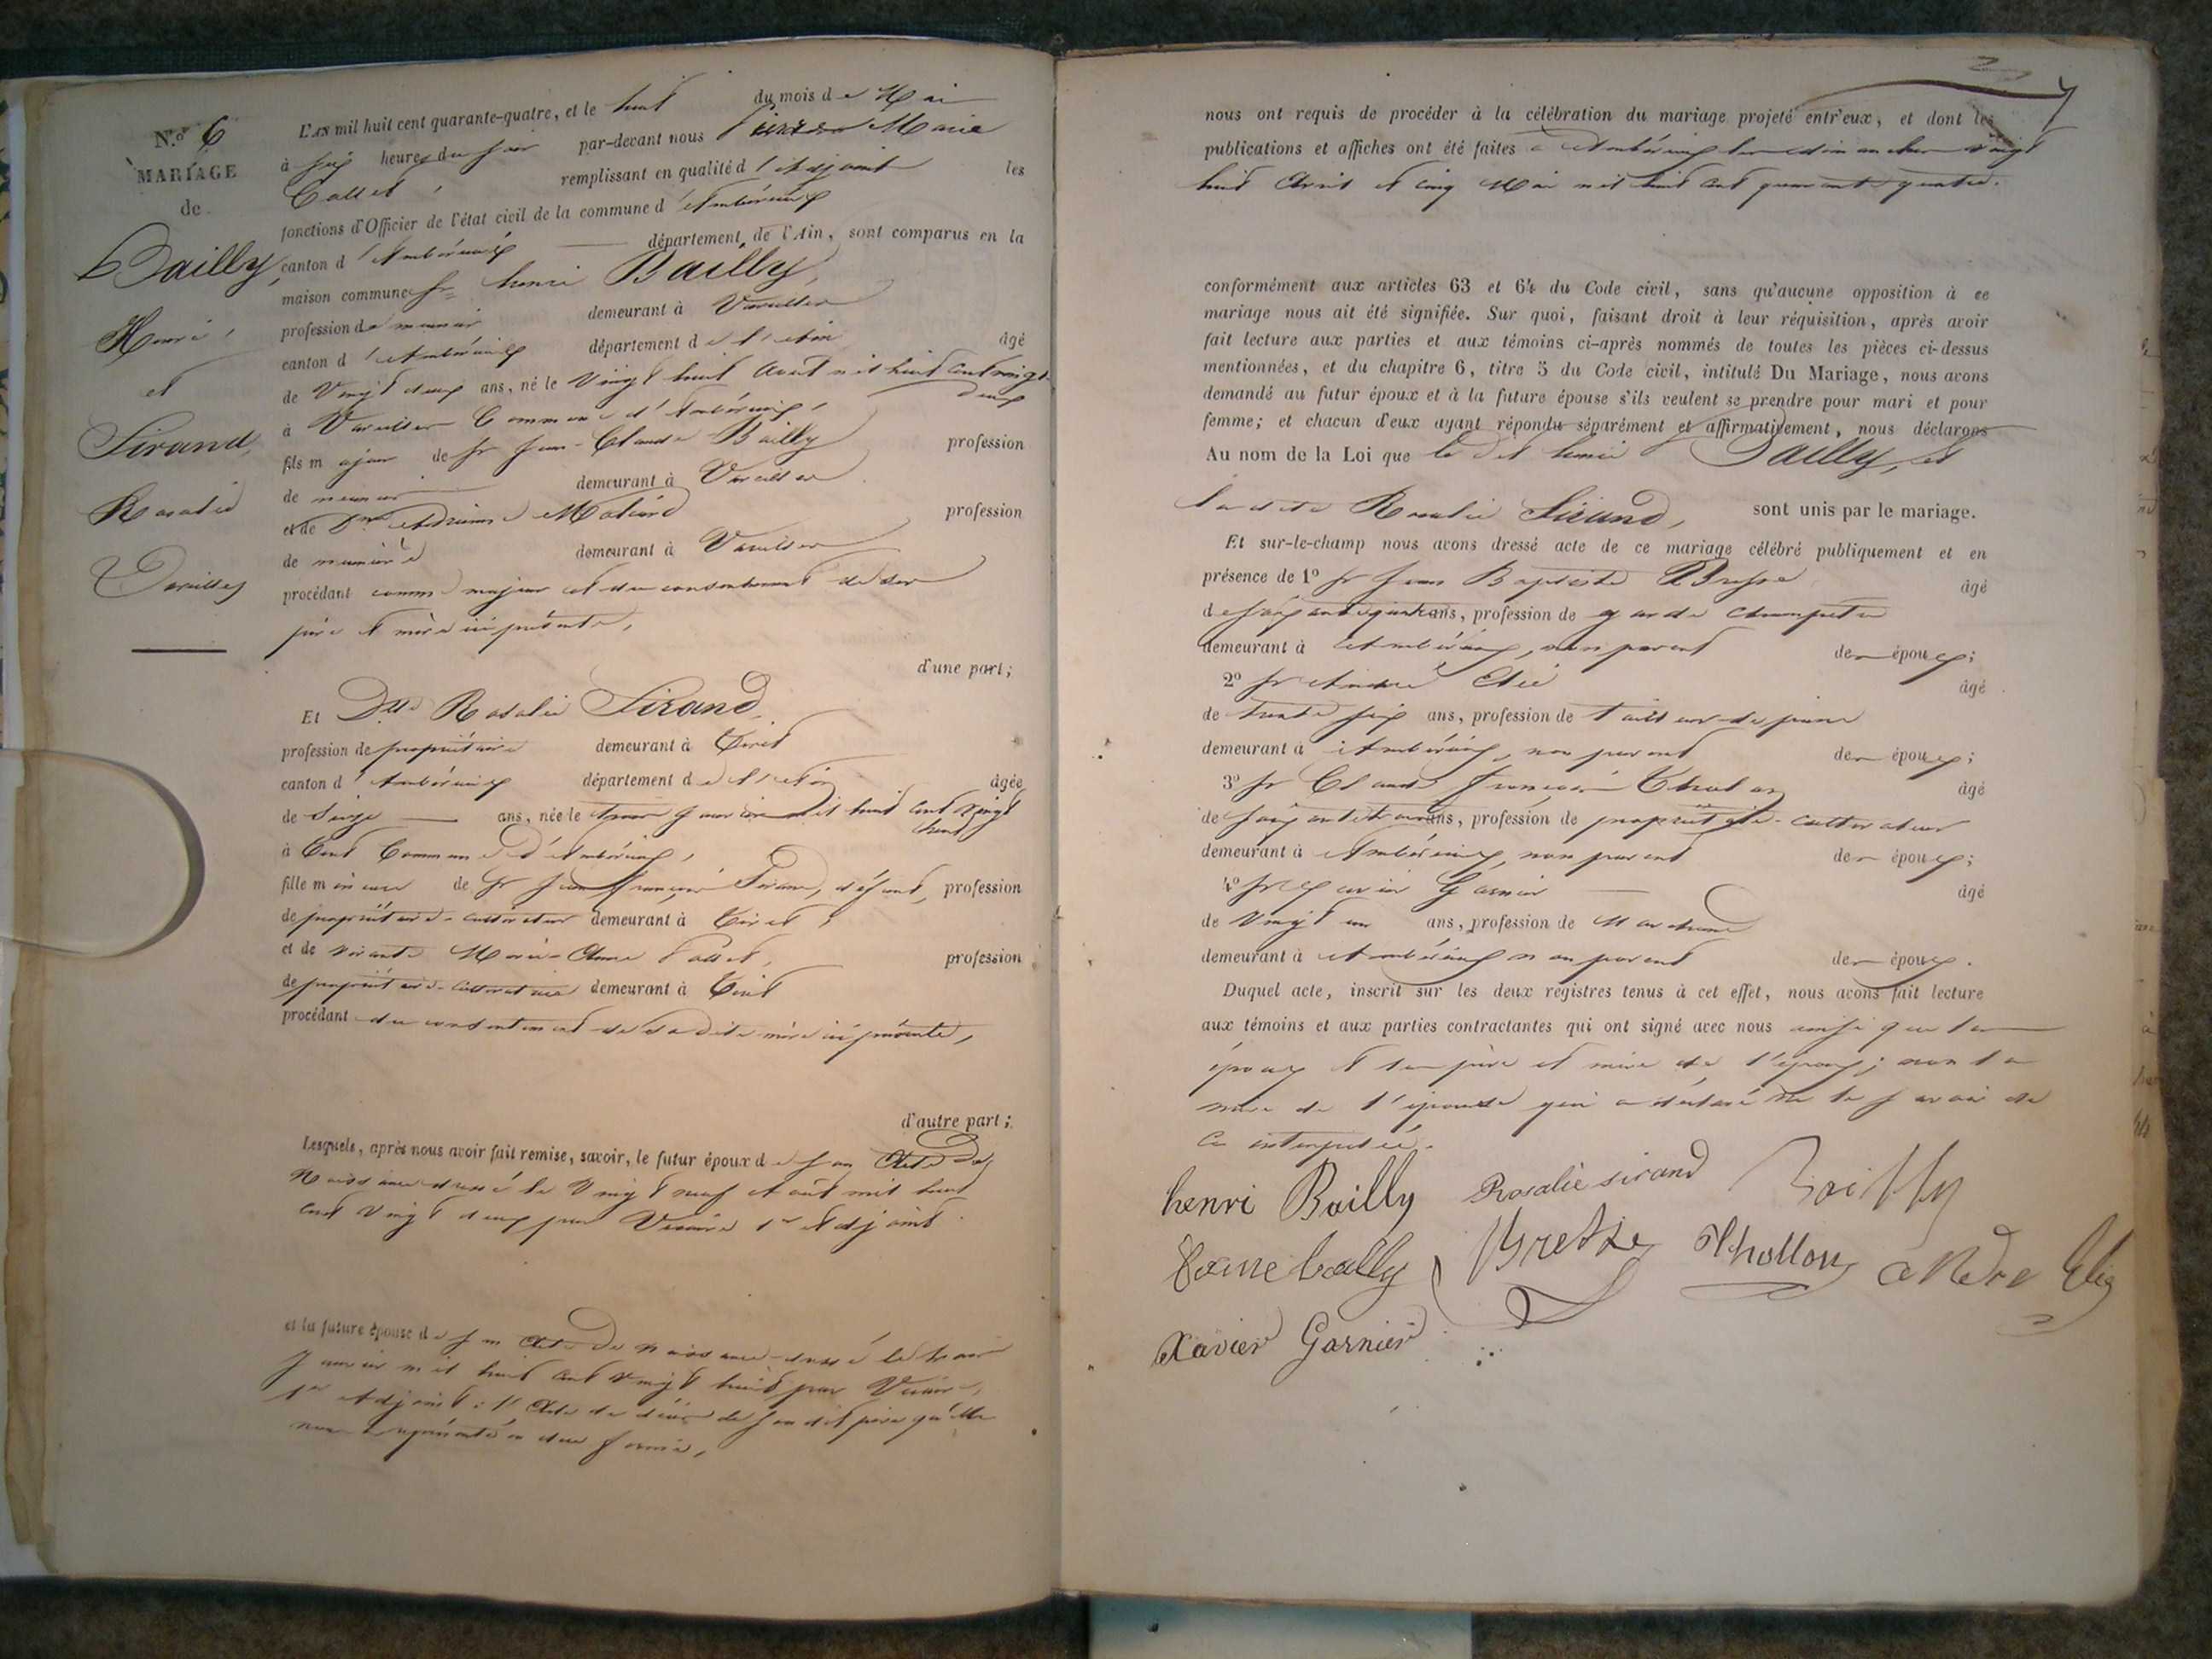 N.º 6
MARIAGE
de
Bailly,
Henri,
et
Sirand,
Rosalie
Vareilles
L'AN mil huit cent quarante-quatre, et le huit du mois de Mai
à six heures du soir par-devant nous Pierre Marie
Collet, remplissant en qualité d'Adjoint les
fonctions d'Officier de l'état civil de la commune d'Ambérieux
canton d'Ambérieux département de l'Ain, sont comparus en la
maison commune Sr henri Bailly,
profession de meunier demeurant à Vareilles
canton d'Ambérieux département de l'Ain âgé
de Vingt deux ans, né le Vingt huit Août mil huit cent vingt
deux
à Vareilles Commune d'Ambérieux,
fils majeur de Sr Jean-Claude Bailly profession
de meunier demeurant à Vareilles
et de Dme profession
de meunière demeurant à Vareilles
procédant comme majeur et du consentement de ses
père et mère ici présents,
d'une part;
Et Dlle Rosalie Sirand,
profession de propriétaire demeurant à Tiret
canton d'Ambérieux département de l'Ain âgée
de Seize ans, née le trois Janvier mil huit cent vingt
huit
à Tiret Commune d'Ambérieux,
fille mineure de Sr Jean François Sirand, défunt, profession
de propriétaire-cultivateur demeurant à Tiret,
et de vivante Marie-Anne profession
de propriétaire-cultivatrice demeurant à Tiret
procédant du consentement de sa dite mère ici présente,
d'autre part;
Lesquels, après nous avoir fait remise, savoir, le futur époux de son Acte de
Naissance dressé le Vingt neuf Août mil huit
cent vingt deux par 1er Adjoint.
et la future épouse de son Acte de naissance dressé le trois
Janvier mil huit cent vingt huit par
1er Adjoint; l'Acte de décès de son dit père qu'elle
nous a représenté en due forme,
7
nous ont requis de procéder à la célébration du mariage projeté entr'eux, et dont les
publications et affiches ont été faites à Ambérieux les dimanches vingt
huit Avril et cinq Mai mil huit cent quarante-quatre.
conformément aux articles 63 et 64 du Code civil, sans qu'aucune opposition à ce
mariage nous ait été signifiée. Sur quoi, faisant droit à leur réquisition, après avoir
fait lecture aux parties et aux témoins ci-après nommés de toutes les pièces ci-dessus
mentionnées, et du chapitre 6, titre 5 du Code civil, intitulé Du Mariage, nous avons
demandé au futur époux et à la future épouse s'ils veulent se prendre pour mari et pour
femme; et chacun d'eux ayant répondu séparément et affirmativement, nous déclarons
Au nom de la Loi que le dit henri Bailly, et
la dite Rosalie Sirand, sont unis par le mariage.
Et sur-le-champ nous avons dressé acte de ce mariage célébré publiquement et en
présence de 1º Sr Jean Baptiste âgé
de soixante quatre ans, profession de garde champêtre
demeurant à Ambérieux, non parent des époux;
2º Sr André Elie âgé
de trente six ans, profession de tailleur de pierre
demeurant à Ambérieux, non parent des époux;
3º Sr Claude François Cholon âgé
de soixante trois ans, profession de propriétaire-cultivateur
demeurant à Ambérieux, non parent des époux;
4º Sr Xavier Garnier âgé
de Vingt un ans, profession de Marchand
demeurant à Ambérieux non parent des époux.
Duquel acte, inscrit sur les deux registres tenus à cet effet, nous avons fait lecture
aux témoins et aux parties contractantes qui ont signé avec nous ainsi que les
époux et les père et mère de l'époux; non la
mère de l'épouse qui a déclaré ne le savoir de
ce interpellée.
henri Bailly Rosalie sirand Bailly
bailly Bresse Chollon andre Elie
Xavier Garnier